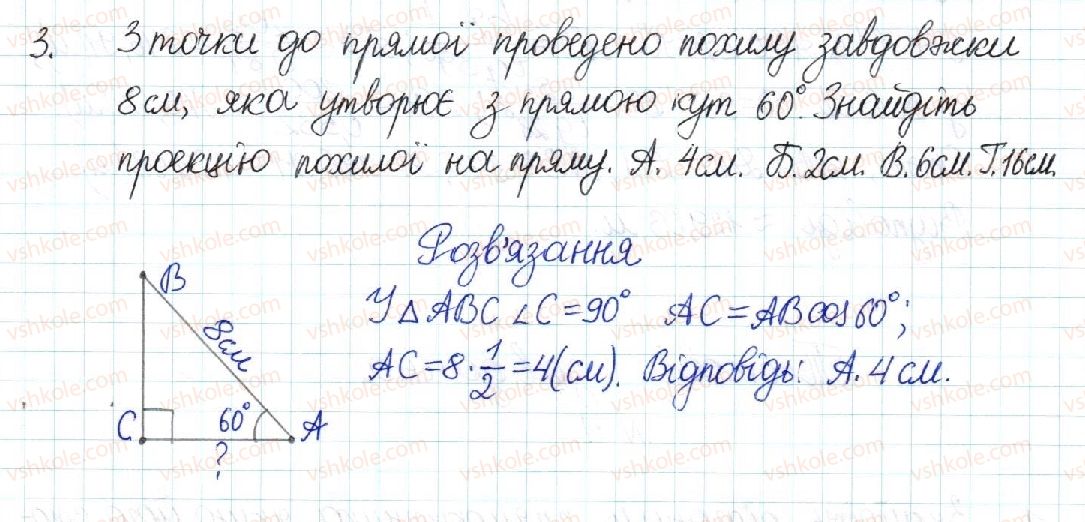 3. З точки до прямої проведено похилу завдовжки
8см, яка утворює з прямою кут 60°. Знайдіть
проекцію похилої на пряму. А. 4см. Б. 2см. В. 6см. Г. 16см.
Розв'язання
У △ABC ∠C = 90° AC = AB cos 60°;
AC = 8 · 1/2 = 4(см). Відповідь: А. 4 см.
B
8см
C 60° A
?